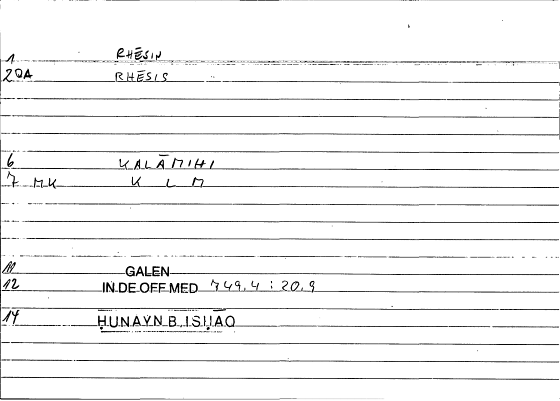 1 RHĒSIN
2 OA RHĒSIS
6 KALĀMIHI
7 MK K L M
11 GALEN
12 IN DE OFF MED 749.4 : 20.9
14 ḤUNAYN B. ISḤĀQ